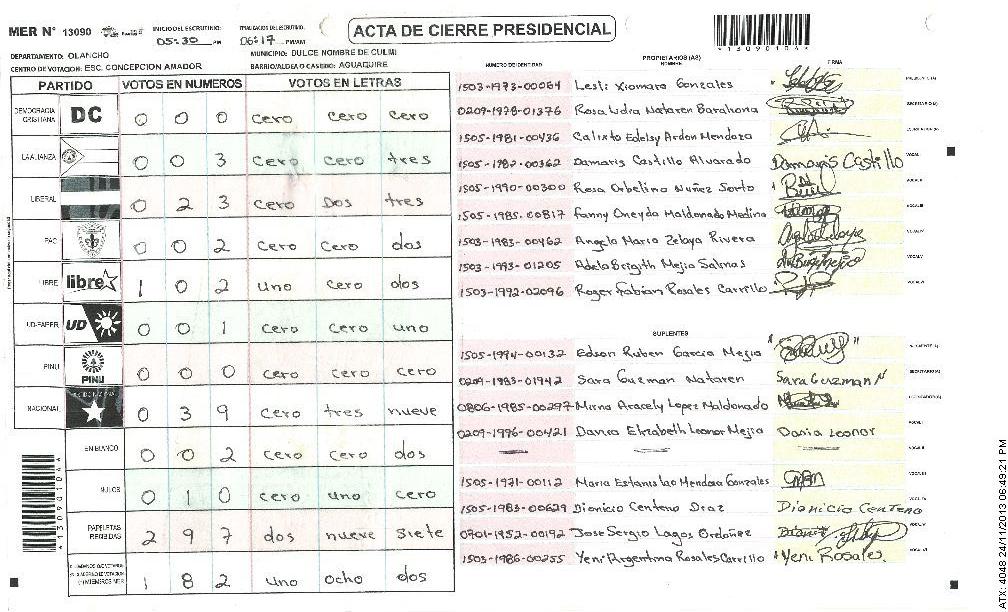 MER Nº 13090
INICIO DEL ESCRUTINIO:
05:30 PM
FINALIZACION DEL ESCRUTINIO:
06:17 PM/AM
ACTA DE CIERRE PRESIDENCIAL
*13090104*
DEPARTAMENTO: OLANCHO
MUNICIPIO: DULCE NOMBRE DE CULMI
CENTRO DE VOTACION: ESC. CONCEPCION AMADOR
BARRIO/ALDEA O CASERIO: AGUAQUIRE
PARTIDO VOTOS EN NUMEROS VOTOS EN LETRAS
DEMOCRACIA CRISTIANA DC 0 0 0 cero cero cero
LA ALIANZA 0 0 3 cero cero tres
LIBERAL 0 2 3 cero Dos tres
PAC 0 0 2 cero cero dos
LIBRE libre 1 0 2 uno cero dos
UD-FAPER UD 0 0 1 cero cero uno
PINU PINU 0 0 0 cero cero cero
NACIONAL 0 3 9 cero tres nueve
EN BLANCO 0 0 2 cero cero dos
NULOS 0 1 0 cero uno cero
PAPELETAS RECIBIDAS 2 9 7 dos nueve siete
1 8 2 uno ocho dos
*13090104*
PROPIETARIOS (AS)
NUMERO DE IDENTIDAD NOMBRE FIRMA
1503-1973-00064 Lesli Xiomara Gonzales
0209-1978-01376 Rosa Lidia Nataren Barahona
1505-1981-00436 Calixto Edelsy Ardon Mendoza
1505-1982-00362 Damaris Castillo Alvarado Damaris Castillo
1505-1990-00300 Rosa Orbelina Nuñez Sorto
1505-1985-00817 Fanny Oneyda Maldonado Medina
1503-1983-00462 Angela Maria Zelaya Rivera
1503-1993-01205 Adela Brigith Mejia Salinas
1503-1992-02096 Roger Fabian Rosales Carrillo
SUPLENTES
1505-1994-00132 Edson Ruben Garcia Mejia
0209-1983-01942 Sara Guzman Nataren Sara Guzman N
0806-1985-00297 Mirna Aracely Lopez Maldonado
0209-1996-00421 Dania Elizabeth Leonor Mejia Dania Leonor
1505-1971-00112 Maria Estanislao Mendoza Gonzales
1505-1983-00629 Dionicio Centeno Diaz Dionicio Centeno
0701-1952-00192 Jose Sergio Lagos Ordoñez
1503-1986-00255 Yeni Argentina Rosales Carrillo Yeni Rosales
ATX: 4048 24/11/2013 06:49:21 PM